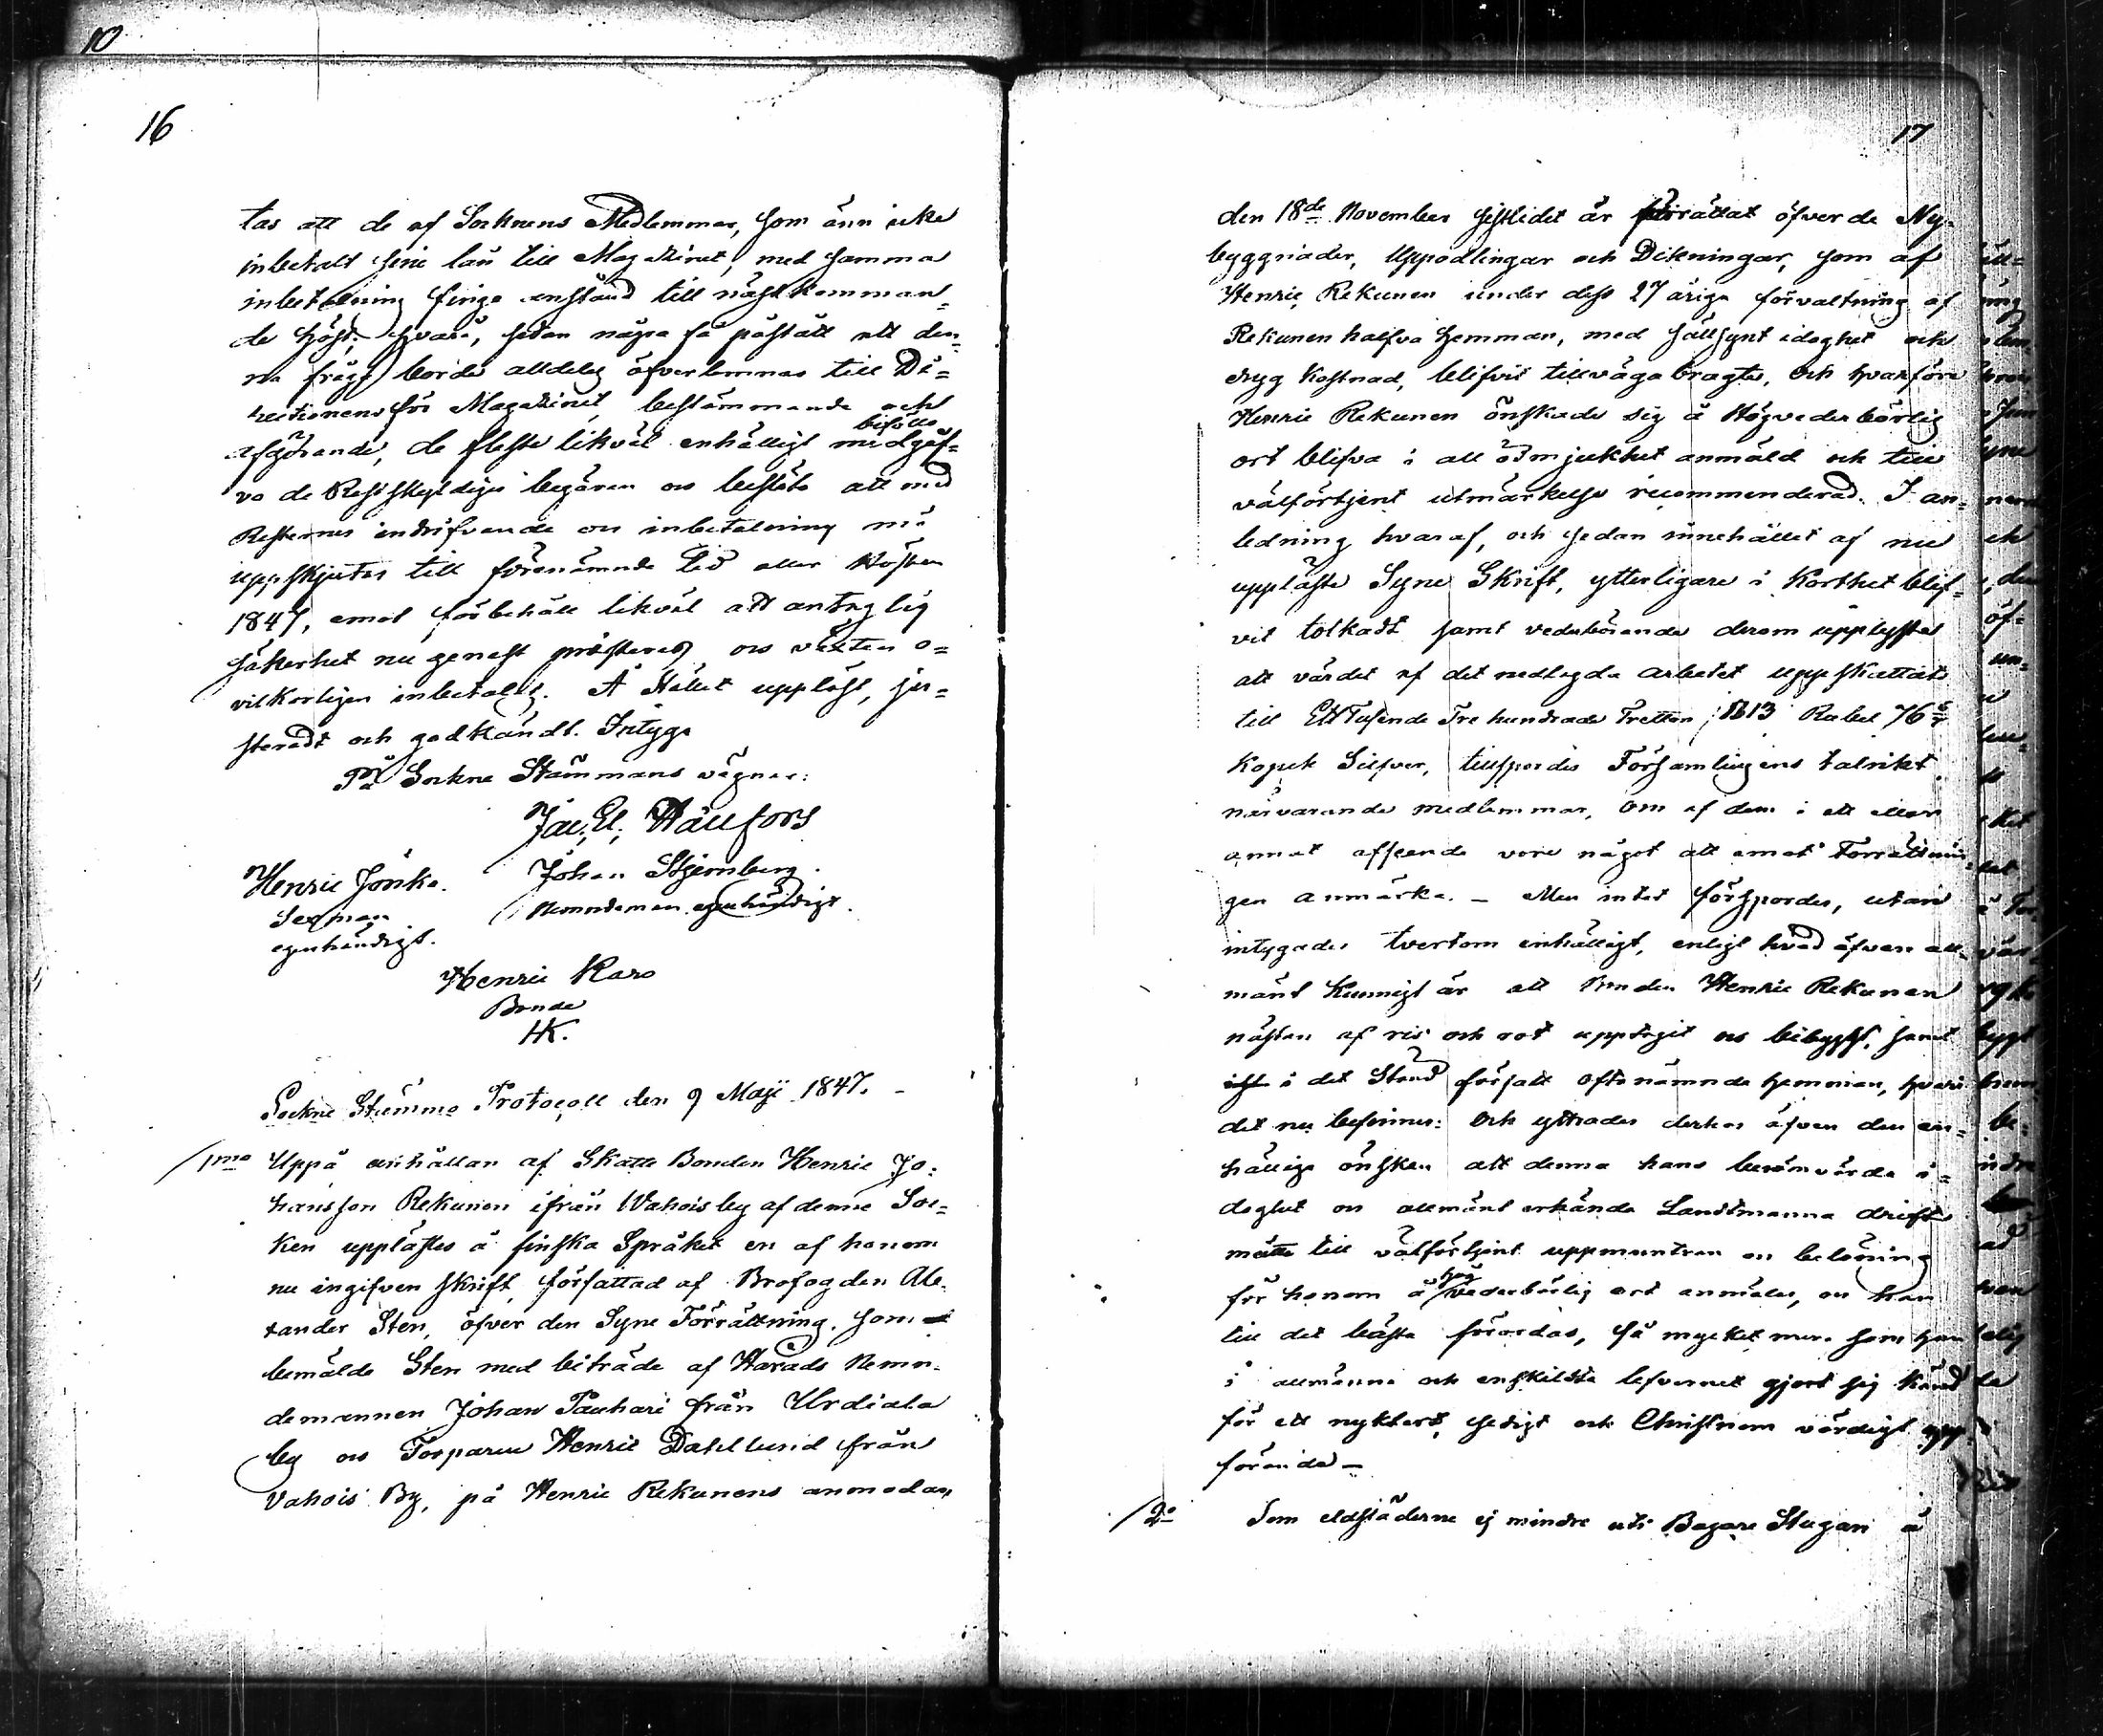 10
16
tas att de af Socknens Medlemmar, som änn icke
inbetalt sine lån till Magazinet, med samma
inbetalning finge anstånd till nästkomman-
de höst; hvarå, sedan några få påstått att den-
na fråga borde alldeles öfverlemnas till Di-
rectionens för Magazinet bestämmande och
afgörande, de fleste likväl enhälligt medgåf- bifölls
vo de Restskyldiges begäran och beslöto att med
Resternes indrifvande och inbetalning må
uppskjutas till förenämnde tid eller Hösten
1847, emot förbehåll likväl att antaglig
säkerhet nu genast præsteras och växten o-
vilkorligen inbetalas. Å Stället uppläst, ju-
steradt och godkändt. Intyga
På Sockne Stämmans vägnar:
Jac. El. Hällfors
Henric Jönka. Johan Stjernberg.
Sexman Nemndeman egenhändigt.
egenhändigt.
Henric Karo
Bonde
HK.
Sockne Stämmo Protocoll den 9 Maji 1847.
1mo Uppå anhållan af Skatte Bonden Henric Jo-
hansson Rekunen ifrån Wahois by af denne Soc-
ken upplästes å finska Språket en af honom
nu ingifven skrift, författad af Brofogden Ale-
xander Sten, öfver den Syne Förrättning, som
bemälde Sten med biträde af Härads Nemn-
demannen Johan Pauhari från Urdiala
by och Torparen Henric Dahllund från
Vahois By, på Henric Rekunens anmodan
17
den 18de November sistlidet år förrättat öfver de Ny-
byggnader, Uppodlingar och Dikningar, som af
Henric Rekunen under dess 27 åriga förvaltning af
Rekunen halfva hemman, med sällsynt idoghet och
dryg kostnad, blifvit tillvägabragte, och hvarföre
Henric Rekunen önskade sig å Högvederbörlig
ort blifva i all ödmjukhet anmäld och till
välförtjent utmärkelse recommenderad. I an-
ledning hvaraf, och sedan innehållet af nu
uppläste Syne Skrift, ytterligare i korthet blif-
vit tolkadt samt vederbörande derom upplyste
att värdet af det nedlagda arbetet uppskattats
till Ett Tusende Tre hundrade Tretton, 1313 Rubel 76
Kopek Silfver, tillspordes Församlingens talrikt
närvarande medlemmar, om af dem i ett eller
annat afseende vore något att emot Förrättnin-
gen anmärka. – Men intet förspordes, utan
intygades tvertom enhälligt, enligt hvad äfven all-
mänt kunnigt är att Bonden Henric Rekunen
nästan af ris och rot upptagit och bebyggt, samt
i det Stånd försatt oftanämnda hemman, hvari
det nu befinnes: Och yttrades derhos äfven den en-
hälliga önskan att denna hans berömvärda i-
doghet och allmänt erkända Landtmanna drift
måtte till välförtjent uppmuntran och belöning
för honom å hög vederbörlig ort anmälas, och han
till det bästa förordas, så mycket mera som han
i allmänna och enskildta lefvernet gjort sig känd
för ett nyktert, sedigt och Christnom värdigt upp-
förande –
2o Som eldstäderne ej mindre uti Bagare Stugan å